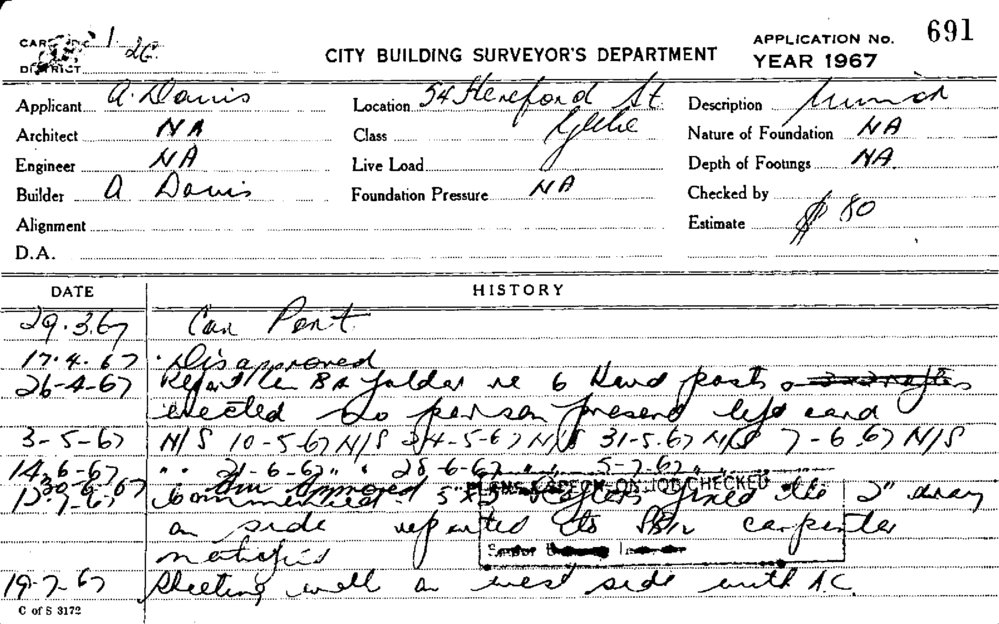 1 26
DISTRICT
CITY BUILDING SURVEYOR'S DEPARTMENT
APPLICATION No. 691
YEAR 1967
Applicant A. Davis
Location 54 Hereford St. Glebe
Description
Architect NA
Class
Nature of Foundation NA
Engineer NA
Live Load
Depth of Footings NA.
Builder A Davis
Foundation Pressure NA
Checked by
Alignment
Estimate $ 80
D.A.
DATE HISTORY
29.3.67 Car Port
17.4.67 Disapproved
26-4-67 re 6 posts
erected no person present left card
3-5-67 N/S 10-5-67 N/S 24-5-67 N/S 31-5.67 N/S 7-6.67 N/S
14.6-67 " " 21-6-67 " " 28-6-67 " " 5-7-67 " "
Approved
12-7-67 Commenced fixed 2"
PLANS & SPECN. ON JOB CHECKED
on side reported to carpenter
Senior
19-7-67 Sheeting wall on west side with A.C.
C of S 3172